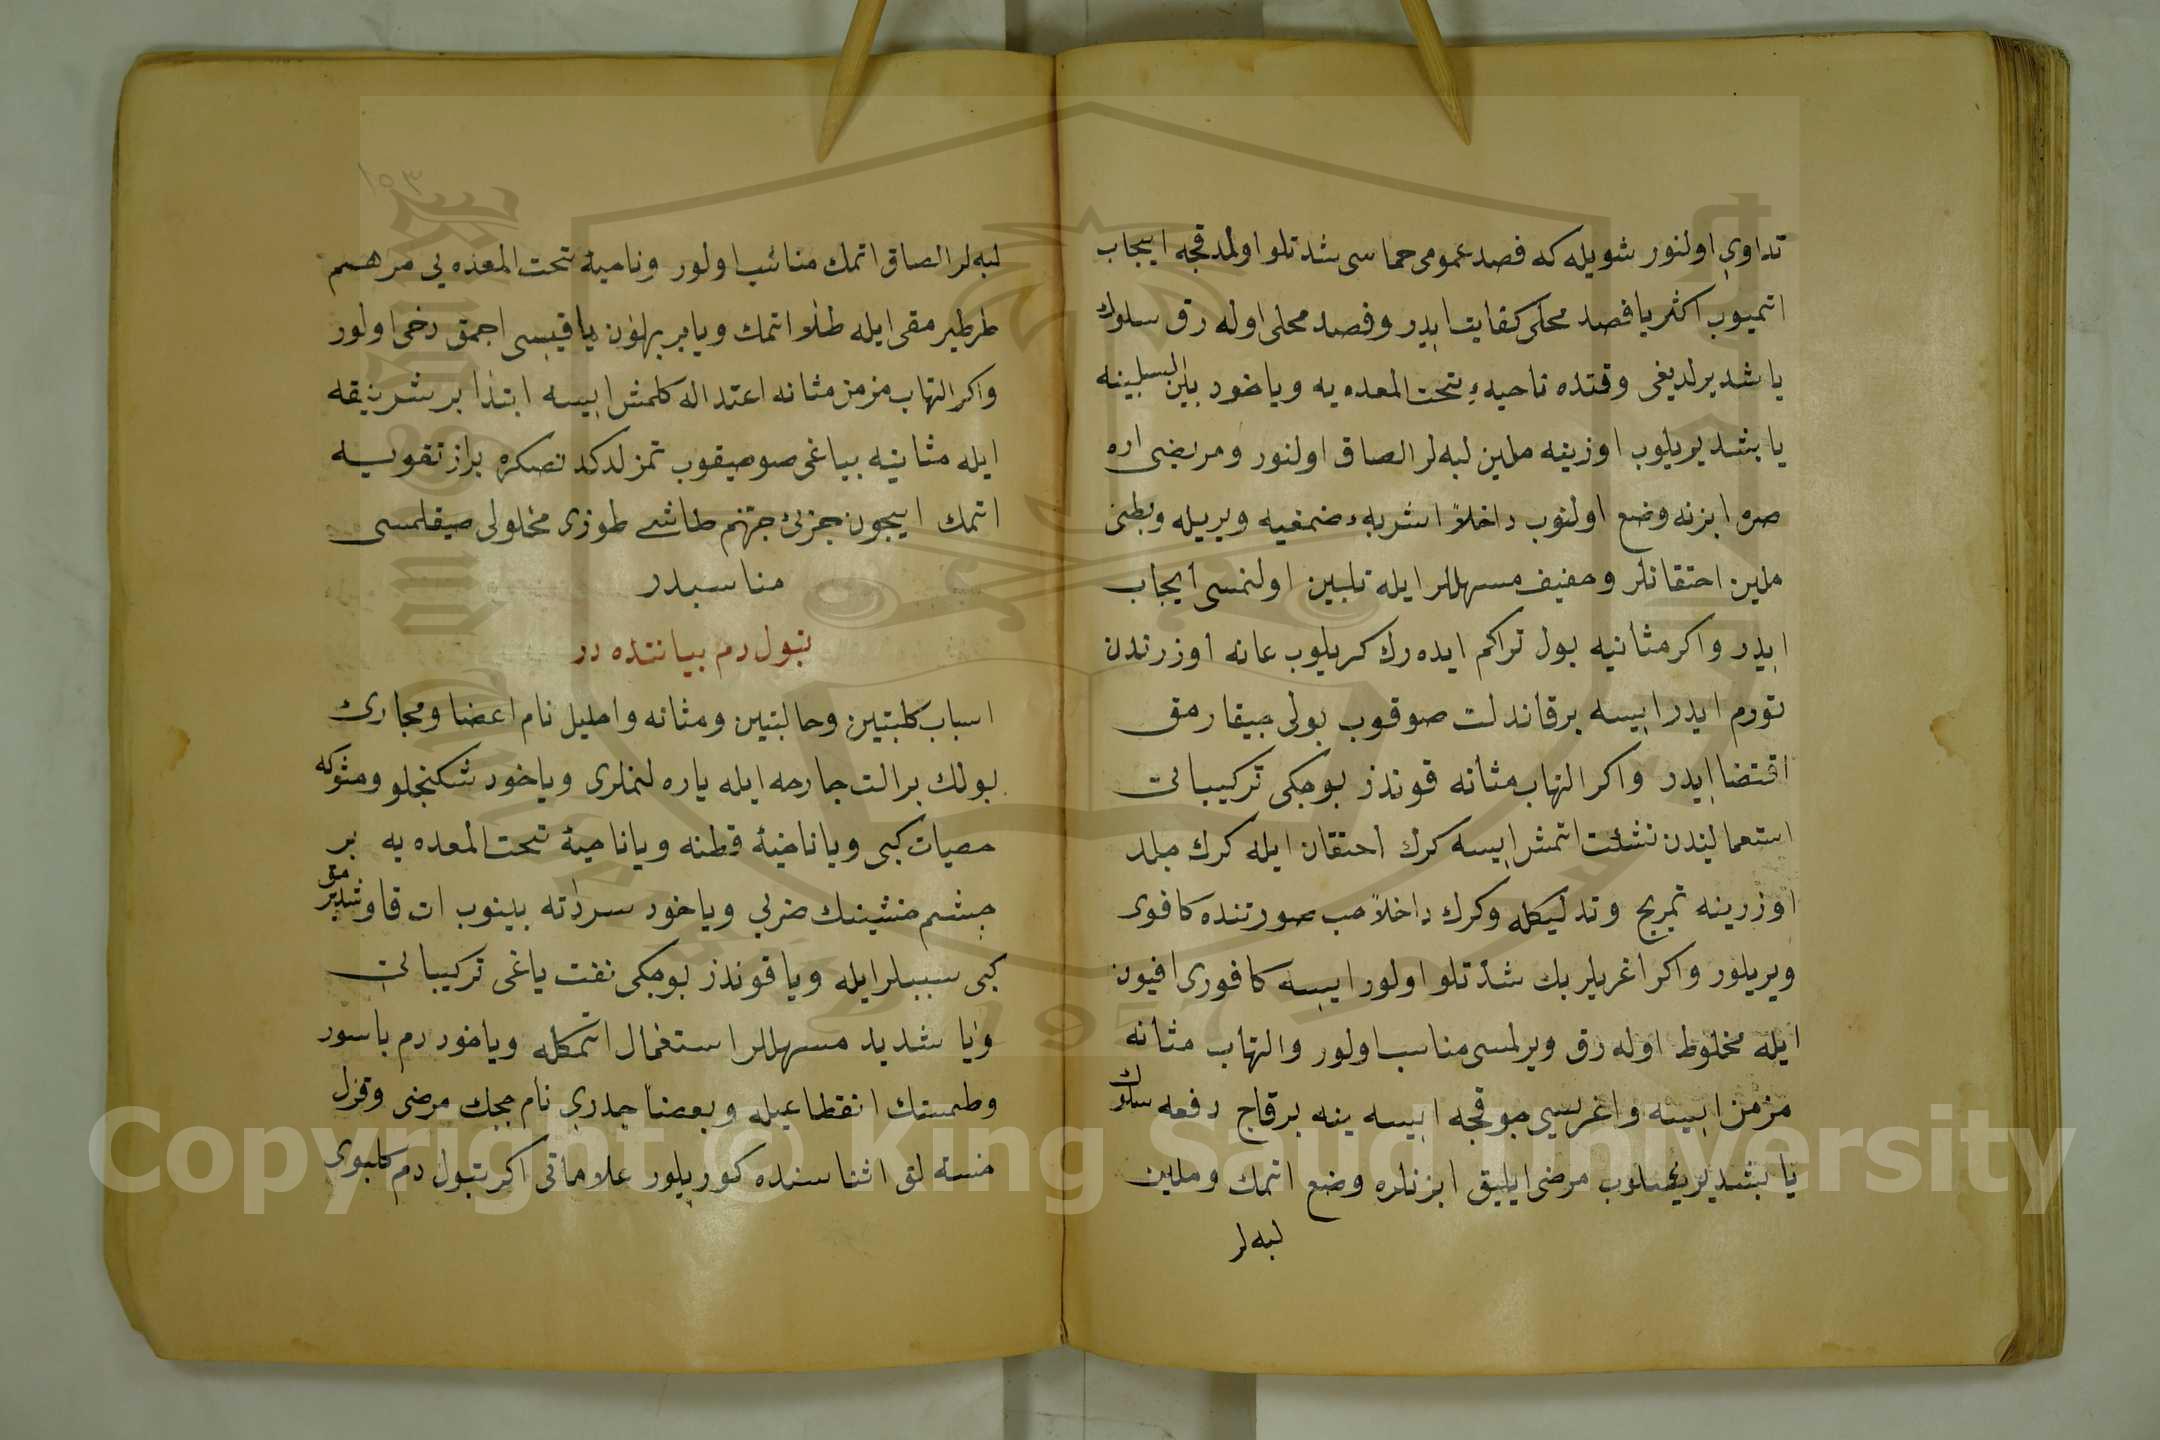 تداوی اولنور شویله که فصد عمومی حماسی شدتلو اولمدقجه ایجاب
اتمیوب اکثریا فصد محلی کفایت ایدر و فصد محلی اوله رق سلوک
یابشدیرلدیغی وقتده ناحیهٔ تحت المعده یه ویاخود بین السبیلینه
یابشدیریلوب اوزینه ملین لبه لر الصاق اولنور و مریضی اره
صره ابزنه وضع اولنوب داخلاً اشربهٔ صمغیه ویریله وبطنی
ملین احتقانلر وخفیف مسهللر ایله تلیین اولنمسی ایجاب
ایدر واکر مثانیه بول تراکم ایده رک کریلوب عانه اوزرندن
تورم ایدر ایسه برقاندلت صوقوب بولی جیقارمق
اقتضا ایدر واکر التهاب مثانه قوندز بوجکی ترکیباتی
استعمالندن نشئت اتمش ایسه کرک احتقان ایله کرک جلد
اوزرینه تمریخ وتدلیکله وکرک داخلاً حب صورتنده کافوری
ویریلور واکر اغریلر بک شدتلو اولور ایسه کافوری افیون
ایله مخلوط اوله رق ویرلمسی مناسب اولور والتهاب مثانه
مزمن ایسه واغریسی جوقجه ایسه ینه برقاج دفعه سلوک
یابشدیریلوب مرضی ایلیق ابزنلره وضع اتمک وملین
لبه لر
١٥٣
لبه لر الصاق اتمک مناسب اولور وناحیهٔ تحت المعده یی مرهم
طرطیر مقی ایله طلا اتمک ویا بر بهلون یاقیسی اجمق دخی اولور
واکر التهاب مزمن مثانه اعتداله کلمش ایسه ابتدا بر شرینقه
ایله مثانیه بیاغی صو صیقوب تمزلدکدنصکره براز تقویه
اتمک ایجون جزئی جهنم طاشی طوزی محلولی صیقلمسی
مناسبدر
تبول دم بیاننده در
اسباب کلیتین وحالبتین ومثانه واحلیل نام اعضا ومجاری
بولک بر الت جارحه ایله یاره لنملری ویاخود شکنجلو ومشوکه
حصیات کبی ویا ناحیهٔ قطنه ویا ناحیهٔ تحت المعده یه بر
جسم خشینک ضربی ویاخود سرداته بینوب ات قاوشدیرمق
کبی سببلر ایله ویا قوندز بوجکی نفت یاغی ترکیباتی
ویا شدید مسهللر استعمال اتمکله ویاخود دم باسور
وطمستک انقطاعیله وبعضاً جدری نام جیجک مرضی وقزل
خسته لق اثناسنده کوریلور علاماتی اکر تبول دم کلیوی